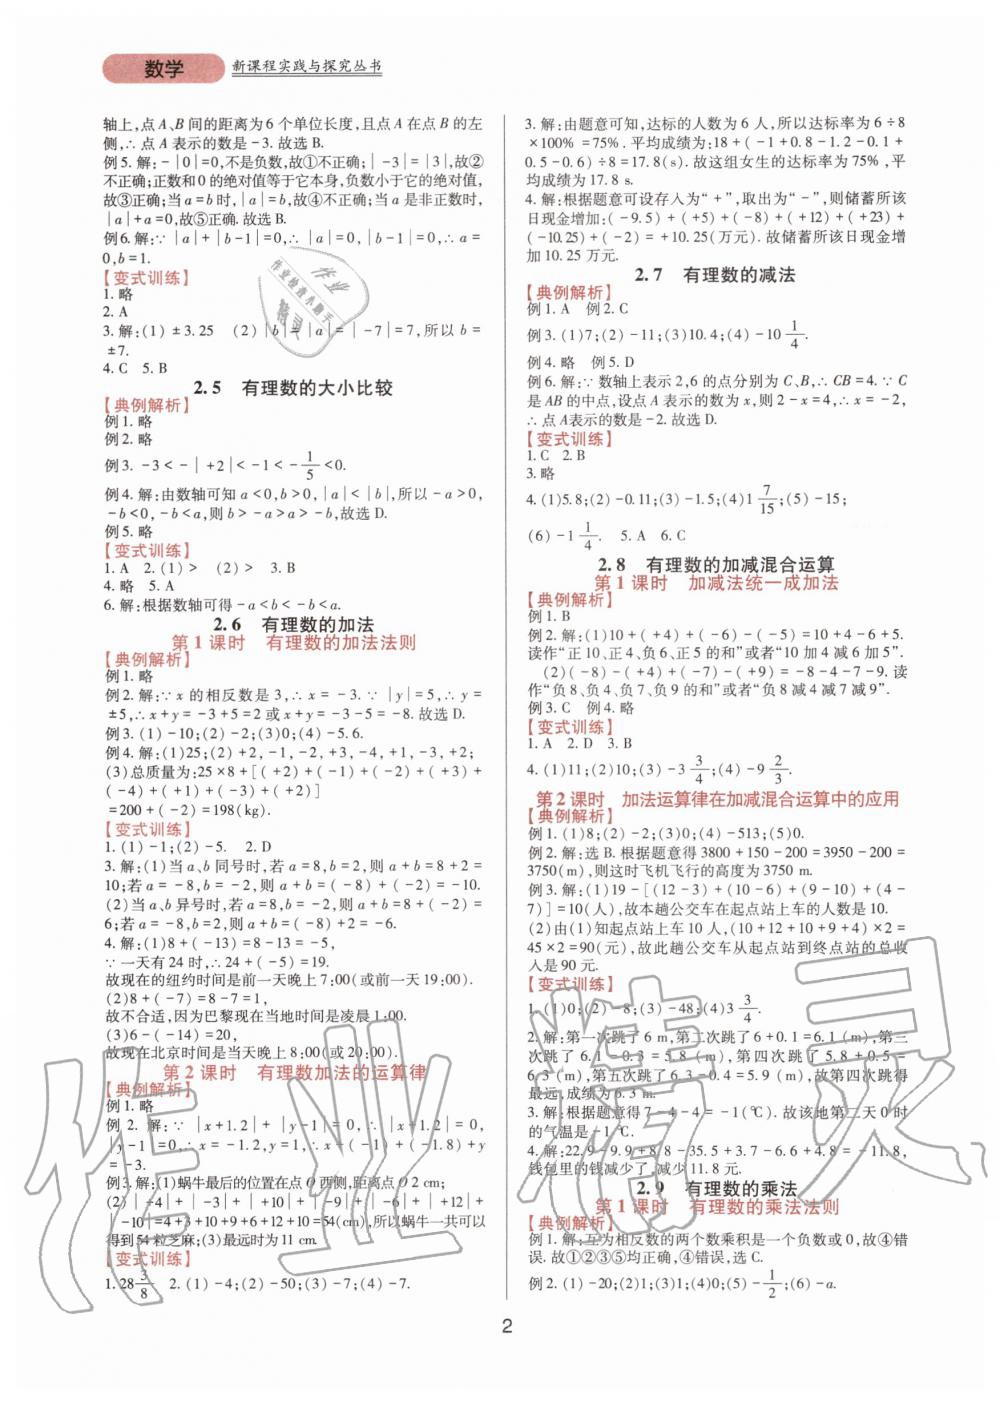 数学
新课程实践与探究丛书
轴上,点 A、B 间的距离为 6 个单位长度,且点 A 在点 B 的左
侧,∴ 点 A 表示的数是 -3. 故选 B.
例 5. 解:-|0|=0,不是负数,故①不正确;|-3|=|3|,故②
不正确;正数和 0 的绝对值等于它本身,负数小于它的绝对值,
故③正确;当 a=b 时,|a|=b,故④不正确;当 a 是非正数时,
|a|+a=0,故⑤正确. 故选 B.
例 6. 解:∵ |a|+|b-1|=0,∴ |a|=0,|b-1|=0,∴ a=
0,b=1.
【变式训练】
1. 略
2. A
3. 解:(1) ±3.25 (2)|b|=|a|=|-7|=7,所以 b=
±7.
4. C 5. B
2.5 有理数的大小比较
【典例解析】
例 1. 略
例 2. 略
例 3. -3<-|+2|<-1<-1/5<0.
例 4. 解:由数轴可知 a<0,b>0,|a|<|b|,所以-a>0,
-b<0,-b<a,则 b>-a>a>-b,故选 D.
例 5. 略
【变式训练】
1. A 2. (1) > (2) > 3. B
4. 略 5. A
6. 解:根据数轴可得-a<b<-b<a.
2.6 有理数的加法
第 1 课时 有理数的加法法则
【典例解析】
例 1. 略
例 2. 解:∵ x 的相反数是 3,∴ x=-3. ∵ |y|=5,∴ y=
±5,∴ x+y=-3+5=2 或 x+y=-3-5=-8. 故选 D.
例 3. (1) -10;(2) -2;(3)0;(4) -5.
例 4. 解:(1)25;(2) +2,-1,-2,+3,-4,+1,-3,+2;
(3)总质量为:25×8+[(+2)+(-1)+(-2)+(+3)+
(-4)+(+1)+(-3)+(+2)]
=200+(-2)=198(kg).
【变式训练】
1. (1) -1;(2) -5. 2. D
3. 解:(1)当 a、b 同号时,若 a=8,b=2,则 a+b=8+2=
10;若 a=-8,b=-2,则 a+b=(-8)+(-2)=-10.
(2)当 a、b 异号时,若 a=8,b=-2,则 a+b=8+(-2)=
6;若 a=-8,b=2,则 a+b=(-8)+2=-6.
4. 解:(1)8+(-13)=8-13=-5,
∵ 一天有 24 时,∴ 24+(-5)=19.
故现在的纽约时间是前一天晚上 7:00(或前一天 19:00).
(2)8+(-7)=8-7=1,
故不合适,因为巴黎现在当地时间是凌晨 1:00.
(3)6-(-14)=20,
故现在北京时间是当天晚上 8:00(或 20:00).
第 2 课时 有理数加法的运算律
【典例解析】
例 1. 略
例 2. 解:∵ |x+1.2|+|y-1|=0,∴ |x+1.2|=0,
|y-1|=0,∴ x=-1.2,y=1,∴ x+(-1)+(-1.8)+y
=-3.
例 3. 解:(1)蜗牛最后的位置在点 O 西侧,距离点 O 2 cm;
(2)|+4|+|-3|+|+10|+|-9|+|-6|+|+12|+
|-10|=4+3+10+9+6+12+10=54(cm),所以蜗牛一共可以
得到 54 粒芝麻;(3)最远时为 11 cm.
【变式训练】
1. 28 3/8 2. (1) -4;(2) -50;(3) -7;(4) -7.
3. 解:由题意可知,达标的人数为 6 人,所以达标率为 6÷8
×100%=75%. 平均成绩为:18+(-1+0.8-1.2-0.1+
0.5-0.6)÷8=17.8(s). 故这组女生的达标率为 75%,平
均成绩为 17.8 s.
4. 解:根据题意可设存入为“+”,取出为“-”,则储蓄所该
日现金增加:(-9.5)+(+5)+(-8)+(+12)+(+23)+
(-10.25)+(-2)=+10.25(万元). 故储蓄所该日现金增
加 10.25 万元.
2.7 有理数的减法
【典例解析】
例 1. A 例 2. C
例 3. (1)7;(2) -11;(3)10.4;(4) -10 1/4.
例 4. 略 例 5. D
例 6. 解:∵ 数轴上表示 2,6 的点分别为 C、B,∴ CB=4. ∵ C
是 AB 的中点,设点 A 表示的数为 x,则 2-x=4,∴ x=-2,
∴ 点 A 表示的数是-2. 故选 D.
【变式训练】
1. C 2. B
3. 略
4. (1)5.8;(2) -0.11;(3) -1.5;(4)1 7/15;(5) -15;
(6) -1 1/4. 5. A 6. C
2.8 有理数的加减混合运算
第 1 课时 加减法统一成加法
【典例解析】
例 1. B
例 2. 解:(1)10+(+4)+(-6)-(-5)=10+4-6+5.
读作“正 10、正 4、负 6、正 5 的和”或者“10 加 4 减 6 加 5”.
(2)(-8)-(+4)+(-7)-(+9)=-8-4-7-9. 读
作“负 8、负 4、负 7、负 9 的和”或者“负 8 减 4 减 7 减 9”.
例 3. C 例 4. 略
【变式训练】
1. A 2. D 3. B
4. (1)11;(2)10;(3) -3 3/4;(4) -9 2/3.
第 2 课时 加法运算律在加减混合运算中的应用
【典例解析】
例 1. (1)8;(2) -2;(3)0;(4) -513;(5)0.
例 2. 解:选 B. 根据题意得 3800+150-200=3950-200=
3750(m),则这时飞机飞行的高度为 3750 m.
例 3. 解:(1)19-[(12-3)+(10-6)+(9-10)+(4-
7)]=10(人),故本趟公交车在起点站上车的人数是 10.
(2)由(1)知起点站上车 10 人,(10+12+10+9+4)×2=
45×2=90(元),故此趟公交车从起点站到终点站的总收
入是 90 元.
【变式训练】
1. (1)0;(2) -8;(3) -48;(4)3 3/4.
2. 解:第一次跳了 6 m,第二次跳了 6+0.1=6.1(m),第三
次跳了 6.1-0.3=5.8(m),第四次跳了 5.8+0.5=
6.3(m),第五次跳了 6.3-0.4=5.9(m),故第四次跳得
最远,成绩为 6.3 m.
3. 解:根据题意得 7-4-4=-1(℃). 故该地第二天 0 时
的气温是-1 ℃.
4. 解:22.9-9.9+8.8-35.5+3.6-6.6+4.8=-11.8,
钱包里的钱减少了,减少 11.8 元.
2.9 有理数的乘法
第 1 课时 有理数的乘法法则
【典例解析】
例 1. 解:互为相反数的两个数乘积是一个负数或 0,故④错
误. 故①②③⑤均正确,④错误,选 C.
例 2. (1) -20;(2)1;(3)1;(4)0;(5) -1/2;(6) -a.
2
作业精灵
作业
作业检查小助手
精灵